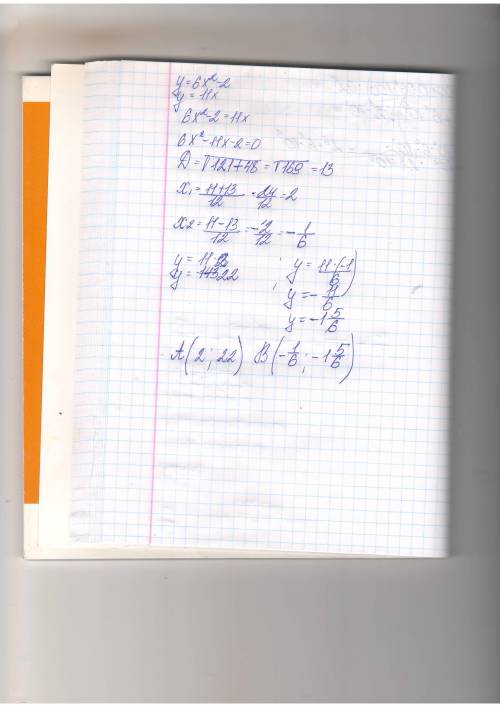 y=6x²-2
y=11x
6x²-2=11x
6x²-11x-2=0
D=√121+48=√169=13
x₁=11+13/12=24/12=2
x₂=11-13/12=-2/12=-1/6
y=11·2 ; y=11·(-1/6)
y=22 y=-11/6
y=-1 5/6
A(2;22) B(-1/6;-1 5/6)